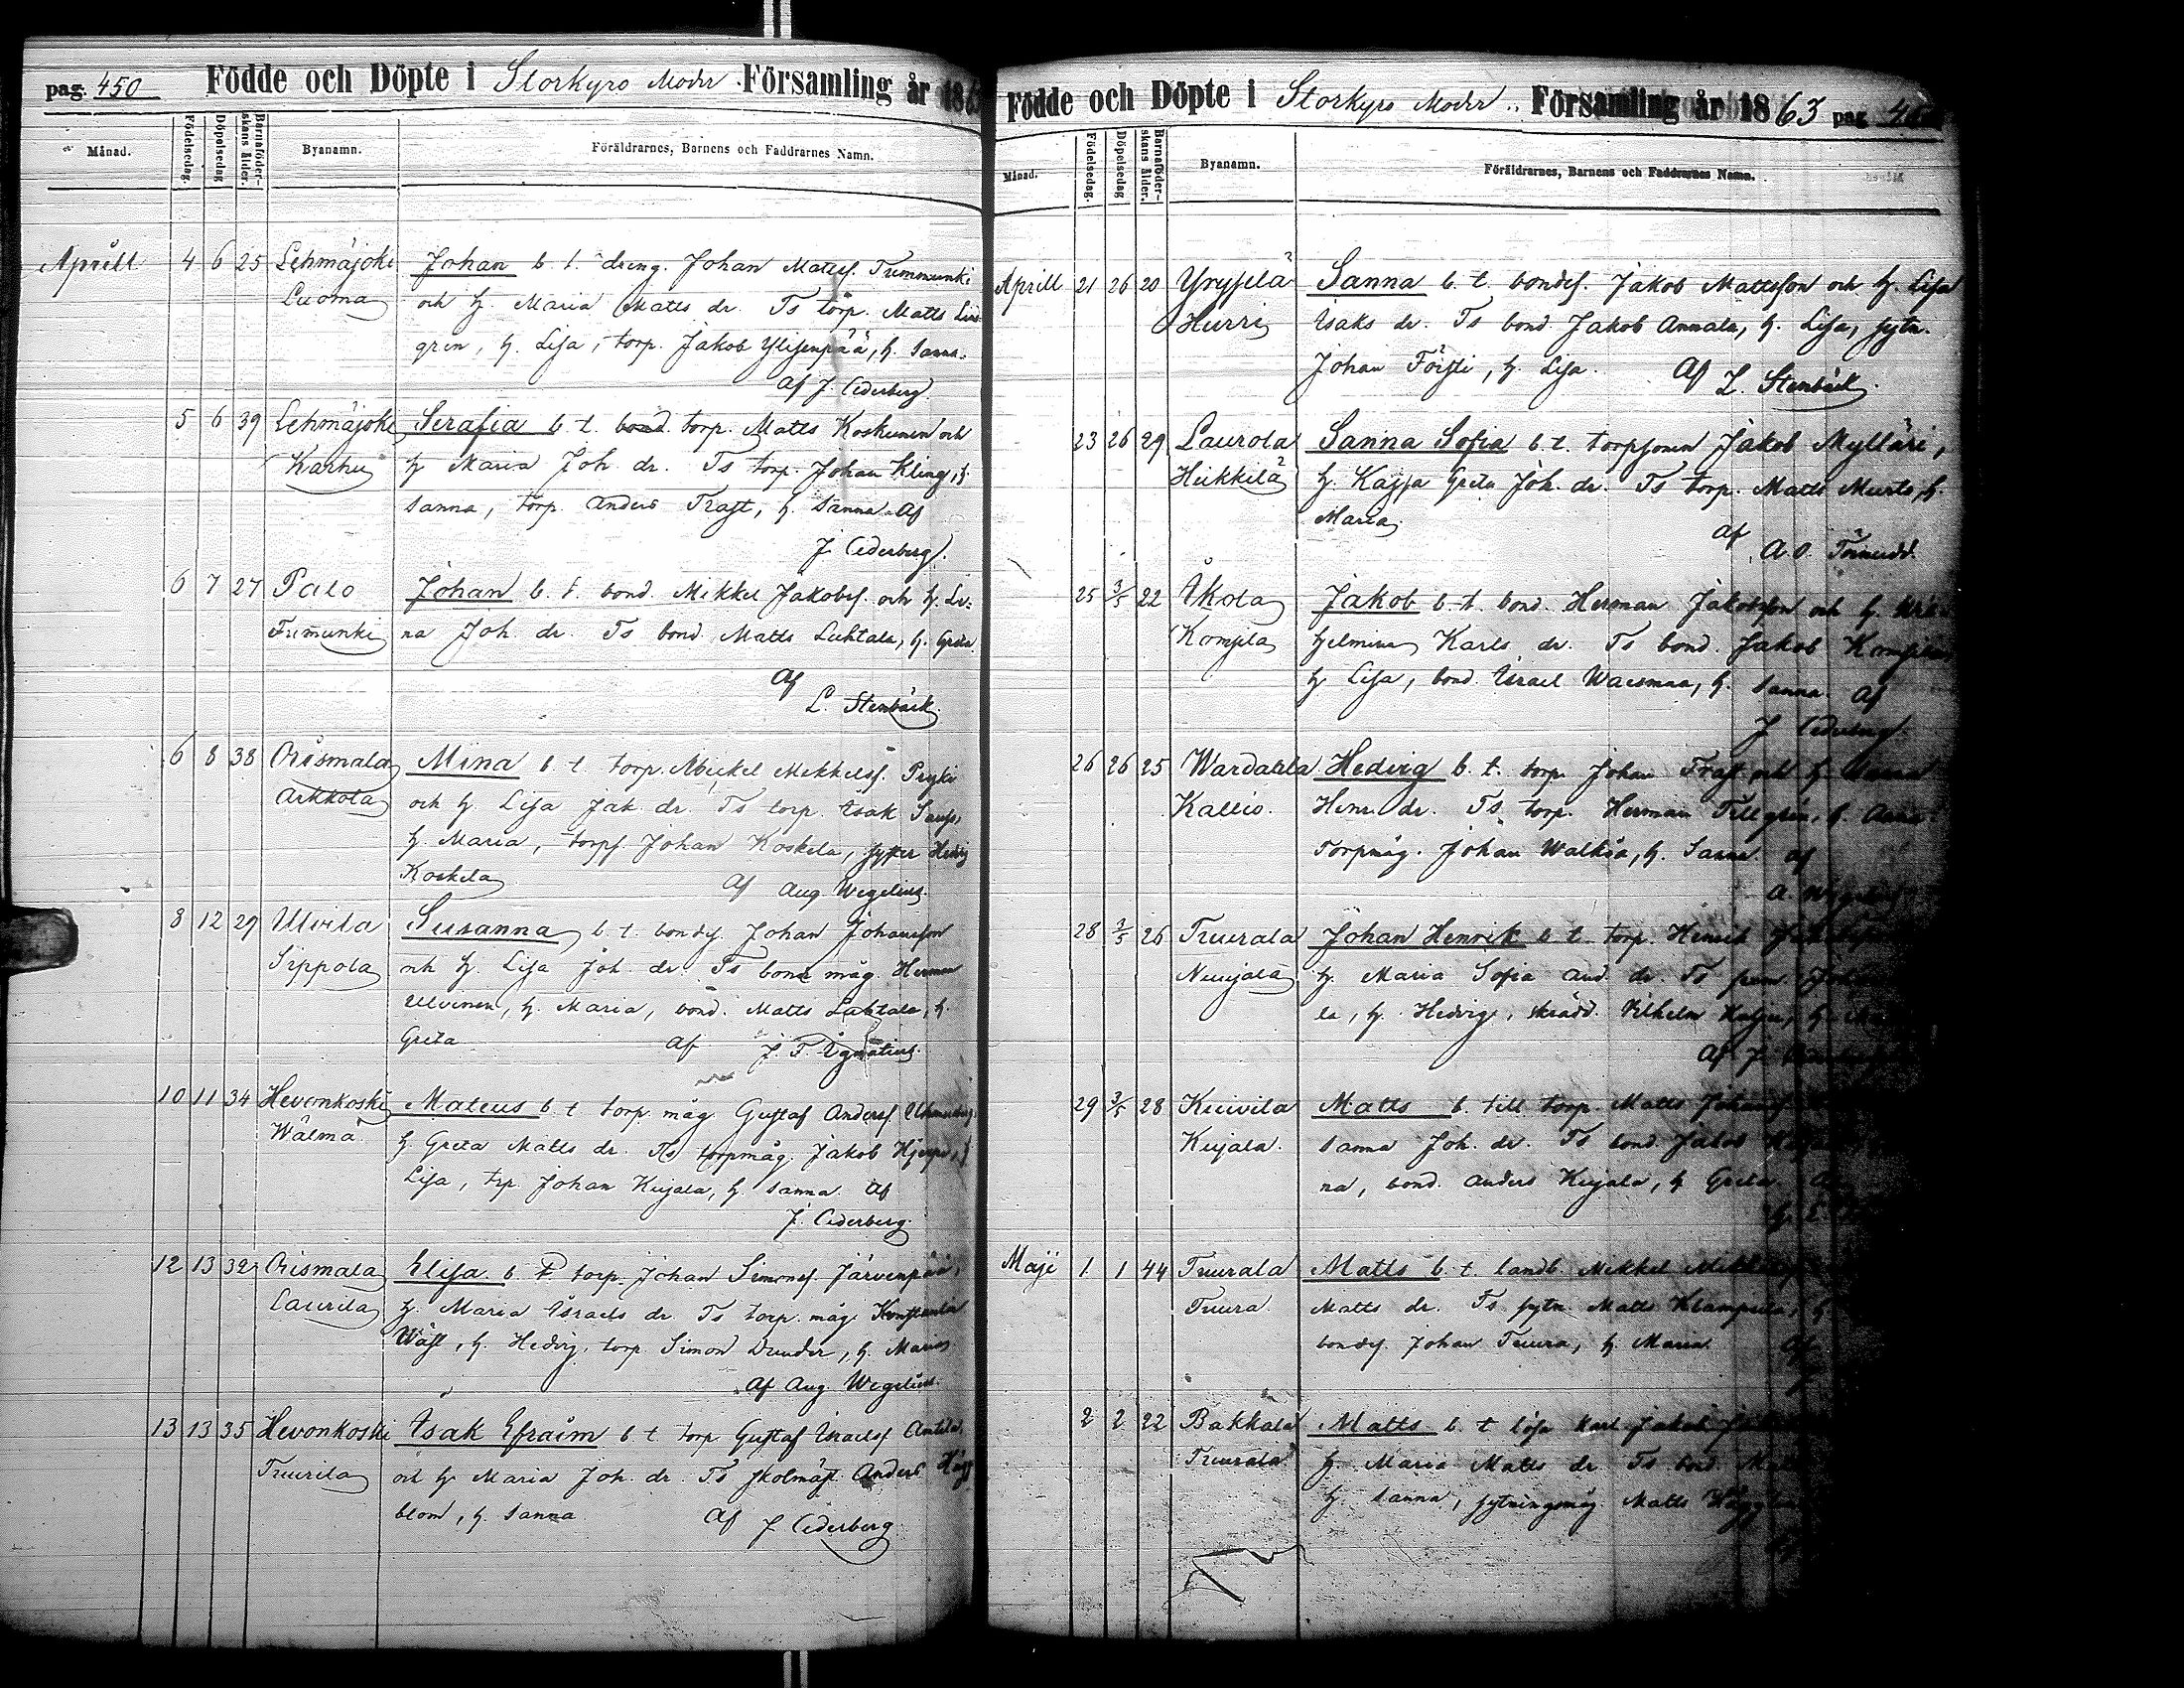 pag. 450 Födde och Döpte i Storkyro Moder Församling år 1863
Månad. Födelsedag. Döpelsedag Barnaföderskans ålder. Byanamn. Föräldrarnes, Barnens och Faddrarnes Namn.
Aprill 4 6 25 Lehmäjoki Johan b. t. dreng. Johan Mattsf. Tummunki
Luoma och h. Maria Matts dr. Ts torp. Matts Lin-
gren, h. Lisa, torp. Jakob Ylisenpää, h. Sanna.
Af J. Cederberg.
5 6 39 Lehmäjoki Serafia b. t. bond. torp. Matts Koskinen och
Karhu h Maria Joh. dr. Ts torp. Johan Kling, h.
Sanna, torp. Anders Trast, h. Sanna Af
J. Cederberg.
6 7 27 Palo Johan b. t. bond. Mikkel Jakobsf. och h. Li-
Tumunki na Joh. dr. Ts bond. Matts Luhtala, h. Greta
Af
L. Stenbäck.
6 8 38 Orismala Mina b. t. torp. Mickel Mikkelsf.
Arkkola och h. Lisa Jak. dr. Ts torp. Isak
h. Maria, torpf. Johan Koskela, syster Hedvig
Koskela Af Aug. Wegelius.
8 12 29 Ulvila Susanna b. t. bondef. Johan Johansson
Sippola och h. Lisa Joh. dr. Ts bond måg. Herman
Ulvinen, h. Maria, bond. Matts Luhtala, h.
Greta Af J. F. Ignatius.
10 11 34 Hevonkoski Mateus b. t torp. måg Gustaf Andersf.
Wälmä h. Greta Matts dr. Ts torpmåg. Jakob Hjerpe, h
Lisa, trp. Johan Kujala, h. Sanna. Af
J. Cederberg.
12 13 32 Orismala Elisa b. t torp. Johan Simonsf. Järvenpää,
Laurila h. Maria Israels dr. Ts torp. måg Konstantin
Wäst, h. Hedvig, torp. Simon Dunder, h. Maria
Af Aug. Wegelius.
13 13 35 Hevonkoski Isak Efraim b. t torp Gustaf Israelsf Antila
Tuurila och h. Maria Joh. dr. Ts skolmäst. Anders Hägg
blom, h. Sanna Af J Cederberg.
Födde och Döpte i Storkyro Moder Församling år 1863 pag.
Månad. Födelsedag. Döpelsedag Barnaföderskans ålder. Byanamn. Föräldrarnes, Barnens och Faddrarnes Namn.
Aprill 21 26 20 Yrysilä Sanna b. t. bondef. Jakob Mattsson och h. Lisa
Hurri Isaks dr. Ts bond Jakob Annala, h. Lisa, sytn.
Johan Försti, h. Lisa. Af L. Stenbäck.
23 26 29 Laurola Sanna Sofia b. t. torpsonen Jakob Mylläri,
Heikkilä h. Kajsa Greta Joh. dr. Ts torp. Matts Murto, h.
Maria. Af
A. O. Törnudd.
25 3/5 22 Ikola Jakob b. t. bond. Herman Jakobsson och h.
Kompila Hjelmina Karls dr. Ts bond. Jakob
h Lisa, bond. Israel Waismaa, h. Sanna Af
J Cederberg.
26 26 25 Wardalila Hedvig b. t. torp. Johan Trast och h.
Kallio. Henr. dr. Ts. torp. Herman Tillgrén, h. Anna
Torpmåg. Johan Walkia, h. Sanna. Af
A. Wegelius
28 3/5 26 Tuurala Johan Henrik b. t. torp. Henrik
Nuujala h. Maria Sofia And. dr. Ts
la, h. Hedvig, skrädd. Vilhelm
Af J.
29 3/5 28 Kuivila Matts b. till torp. Matts
Kujala. Sanna Joh. dr. Ts bond. Jakob
na, bond. Anders Kujala, h Greta
Maji 1 1 44 Tuurala Matts b. t. landb. Mikkel
Tuura Matts dr. Ts sytn. Matts
bondef. Johan Tuura, h. Maria. Af
2 2 22 Bakkala Matts b. t lösa karl. Jakob
Tuurala h. Maria Matts dr Ts bond.
h. Sanna, sytningsmåg. Matts